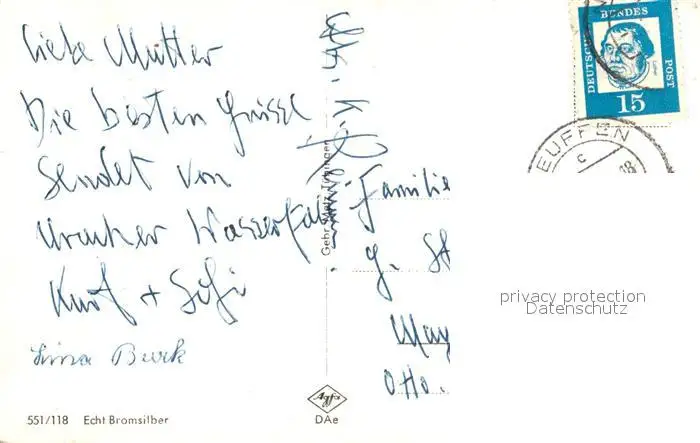 Liebe Mutter
Die besten Grüsse
Sendet von
Uracher Wasserfall
Kurt + Sofi
Lina Burk
551/118 Echt Bromsilber
Gebr. Metz, Tübingen
Agfa
DAe
DEUTSCHE BUNDES POST
15
EUFFEN
c
Familie
g. St
May
Otto.
privacy protection
Datenschutz